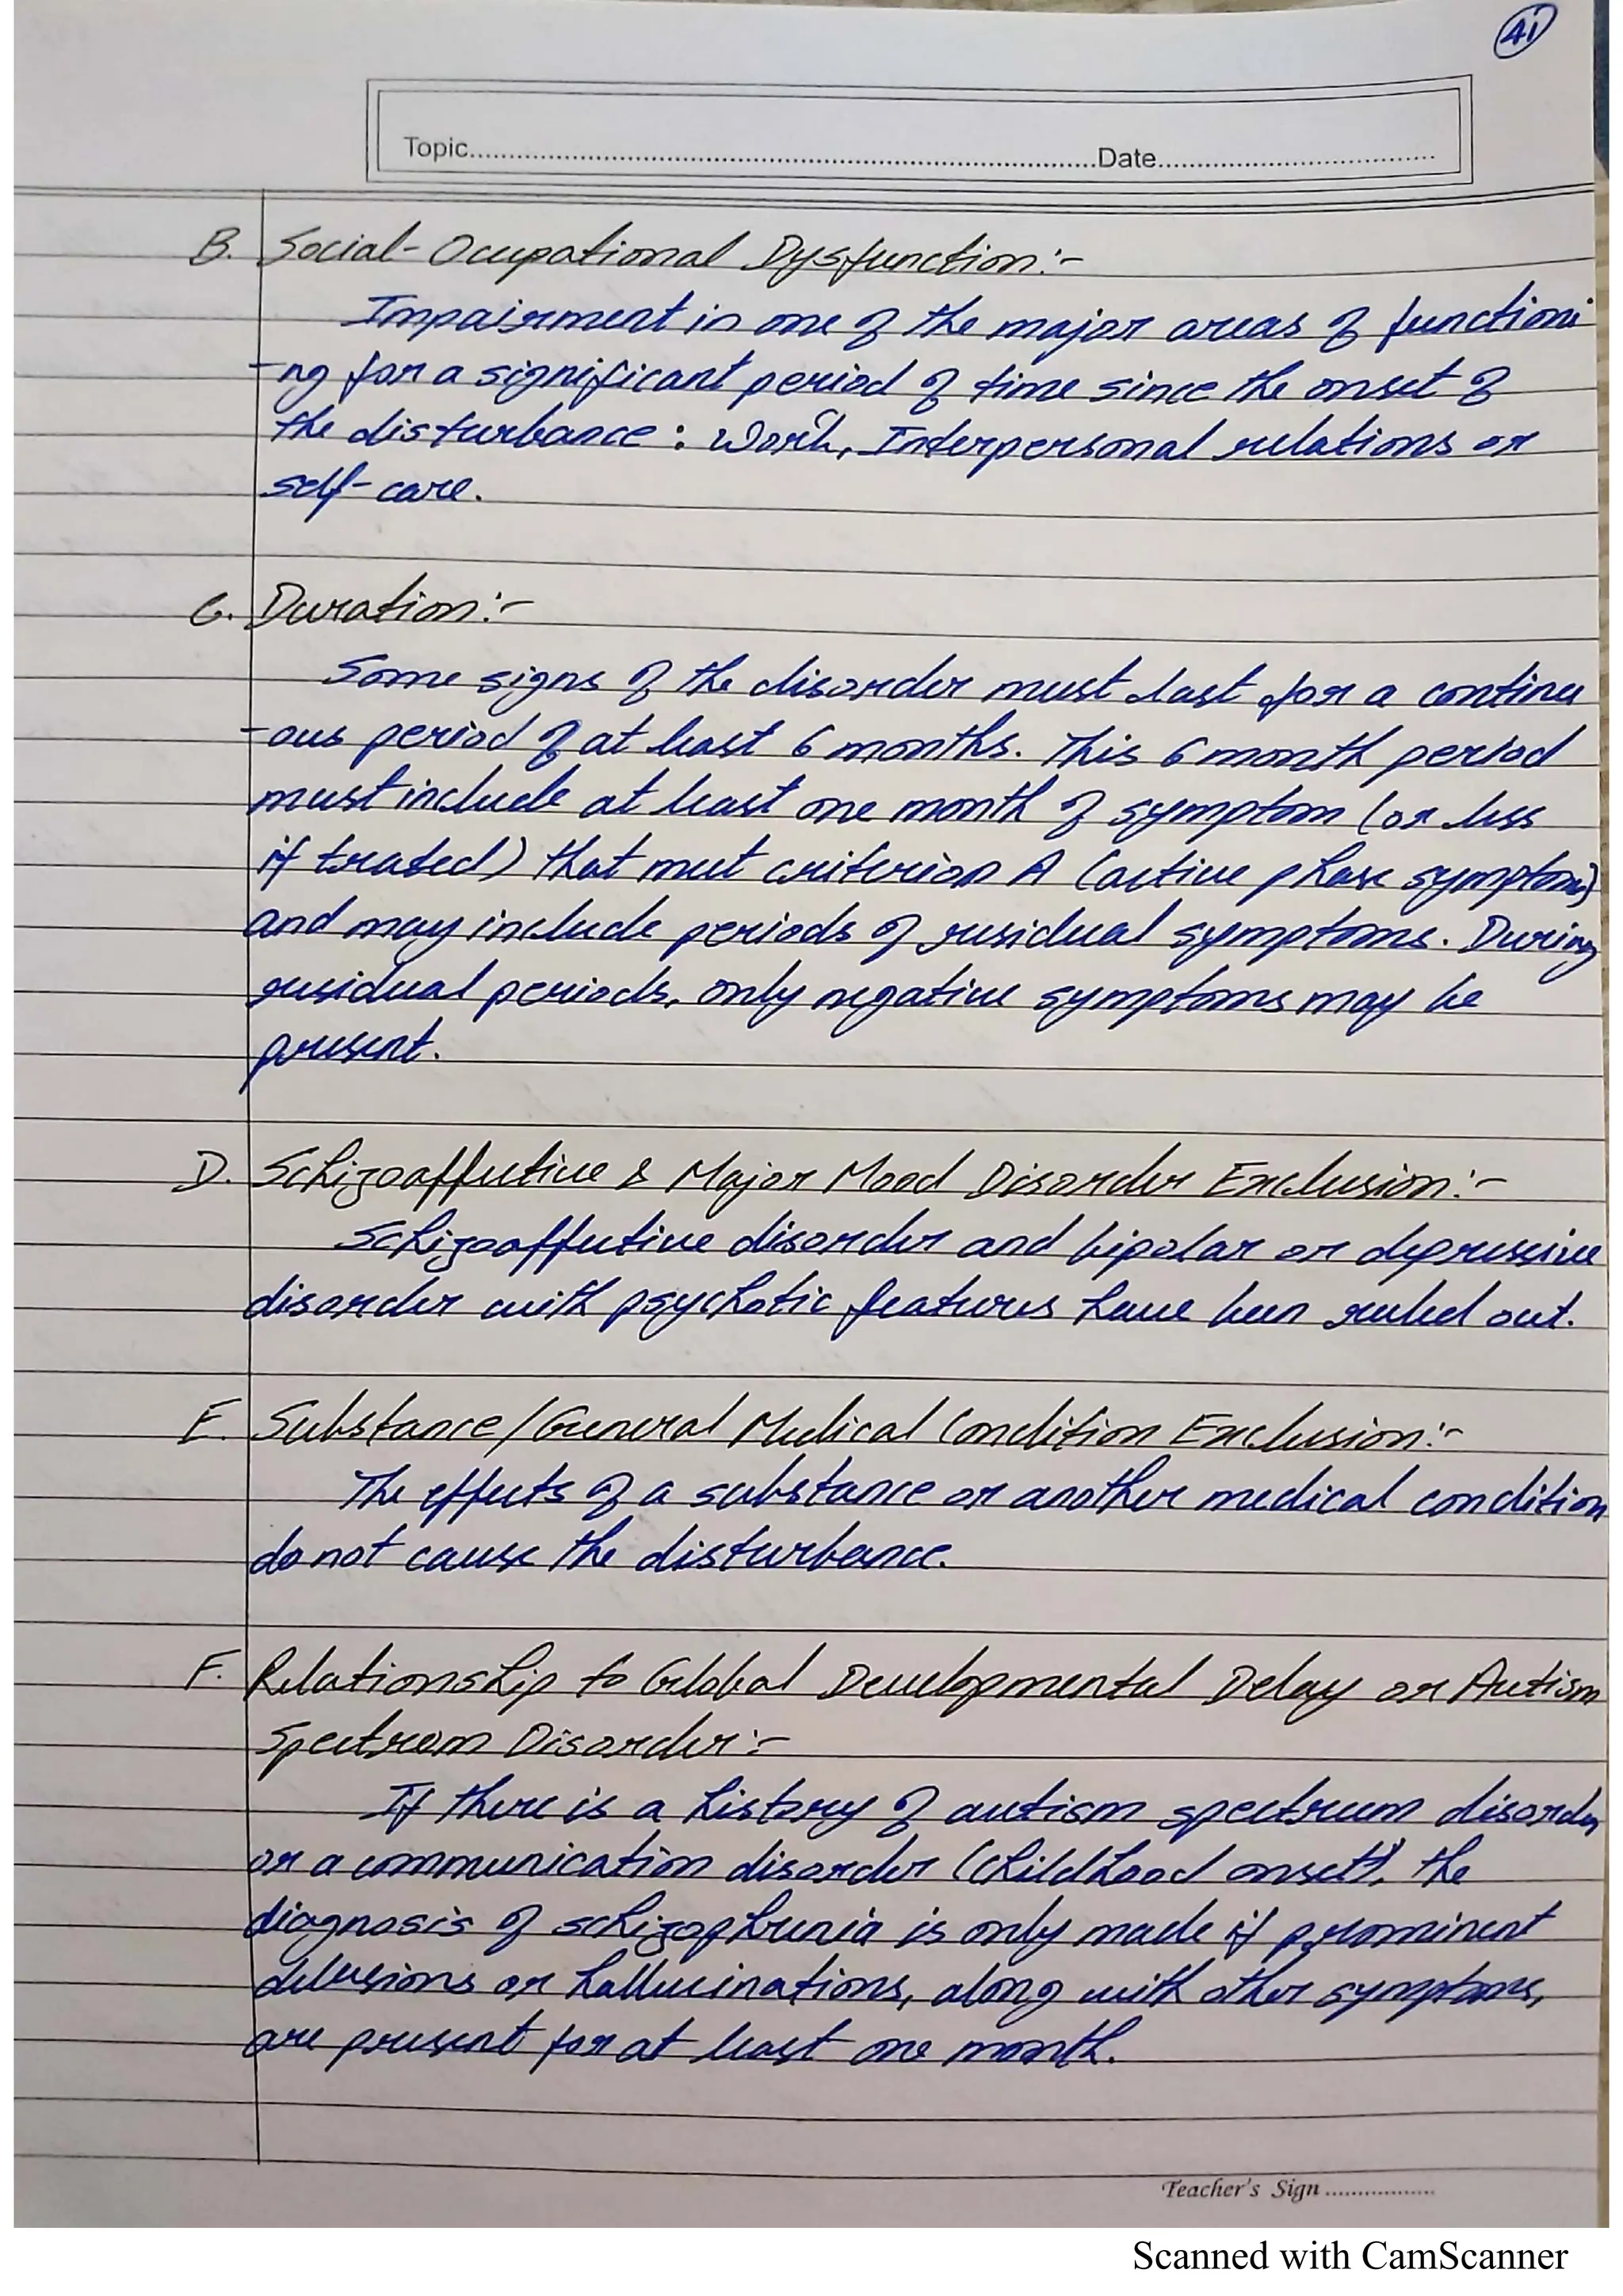 4i
Topic..........Date..........
B. Social-Ocupational Dysfunction:-
Impairment in one of the major areas of functioni
-ng for a significant period of time since the onset of
the disturbance : Work, Interpersonal relations or
self-care.
C. Duration:-
Some signs of the disorder must last for a continu
-ous period of at least 6 months. This 6 month period
must include at least one month of symptom (or less
if treated) that meet criterion A (active phase symptoms)
and may include periods of residual symptoms. During
residual periods, only negative symptoms may be
present.
D. Schizoaffective & Major Mood Disorder Exclusion:-
Schizoaffective disorder and bipolar or depressive
disorder with psychotic features have been ruled out.
E. Substance/General Medical Condition Exclusion:-
The effects of a substance or another medical condition
do not cause the disturbance.
F. Relationship to Global Developmental Delay or Autism
Spectrum Disorder:-
If there is a history of autism spectrum disorder
or a communication disorder (childhood onset), the
diagnosis of schizophrenia is only made if prominent
delusions or hallucinations, along with other symptoms,
are present for at least one month.
Teacher's Sign ..........
Scanned with CamScanner